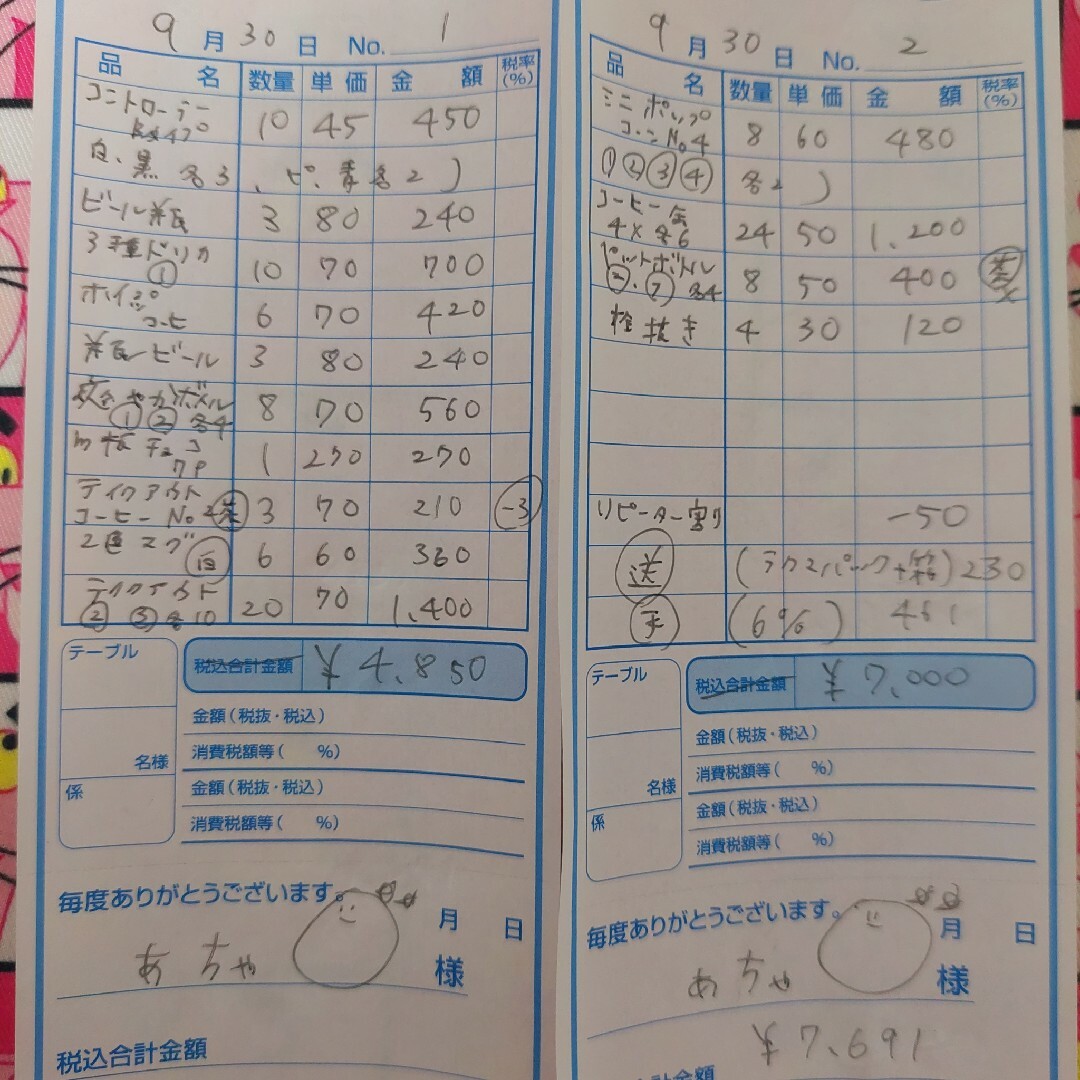 9月30日 No. 1
品名 数量 単価 金額 税率(%)
コントローラー 10 45 450
白、黒 各3、ピ、青各2)
ビール瓶 3 80 240
3種ドリカ① 10 70 700
ホイップコーヒ 6 70 420
瓶ビール 3 80 240
①② 各4 8 70 560
板チョコ 7P 1 270 270
テイクアウト
コーヒー No.2茶 3 70 210 -3
2色マグ白 6 60 360
テイクアウト
② ③各10 20 70 1,400
テーブル
税込合計金額 ¥4,850
金額(税抜・税込)
名様 消費税額等( %)
係 金額(税抜・税込)
消費税額等( %)
毎度ありがとうございます。
月 日
あちゃ 様
税込合計金額
9月30日 No. 2
品名 数量 単価 金額 税率(%)
ミニポップ
コーン No4 8 60 480
①②③④ 各2)
コーヒー缶
4×各6 24 50 1,200
ペットボトル
各4 8 50 400 茶
栓抜き 4 30 120
リピーター割り -50
送 (ラクマパック+箱)230
手 (6%) 461
テーブル
税込合計金額 ¥7,000
金額(税抜・税込)
名様 消費税額等( %)
係 金額(税抜・税込)
消費税額等( %)
毎度ありがとうございます。
月 日
あちゃ 様
¥7,691
税込合計金額